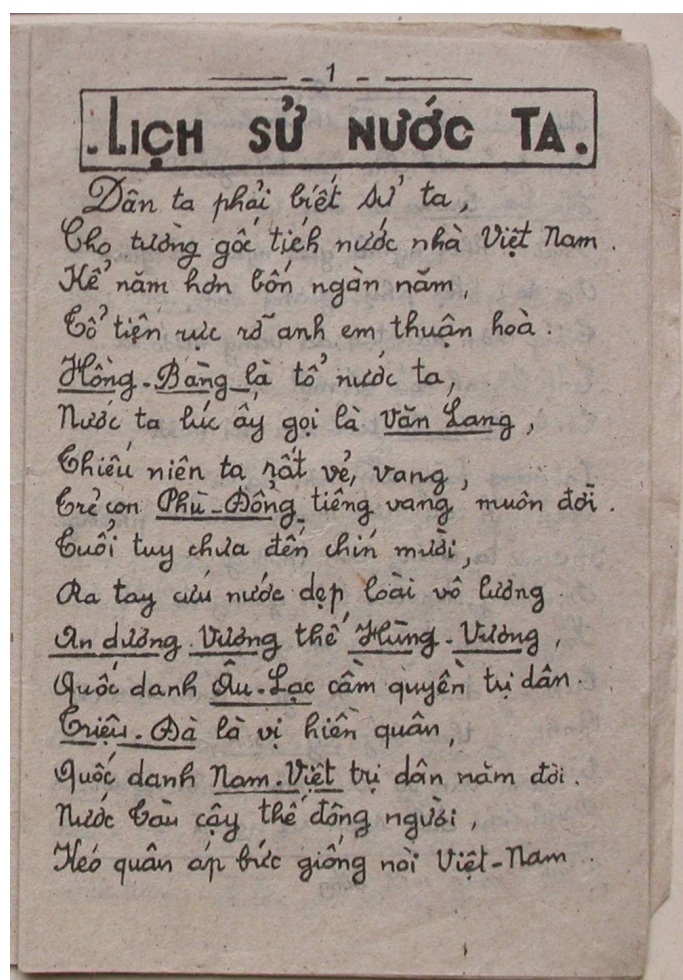 - 1 -
. LỊCH SỬ NƯỚC TA .
Dân ta phải biết sử ta,
Cho tường gốc tích nước nhà Việt Nam.
Kể năm hơn bốn ngàn năm,
Tổ tiên rực rỡ anh em thuận hoà.
Hồng-Bàng là tổ nước ta,
Nước ta lúc ấy gọi là Văn Lang,
Thiếu niên ta rất vẻ vang,
Trẻ con Phù-Đổng tiếng vang muôn đời.
Tuổi tuy chưa đến chín mười,
Ra tay cứu nước dẹp loài vô lương.
An dương Vương thế Hùng-Vương,
Quốc danh Âu-Lạc cầm quyền trị dân.
Triệu-Đà là vị hiền quân,
Quốc danh Nam-Việt trị dân năm đời.
Nước Tàu cậy thế đông người,
Kéo quân áp bức giống nòi Việt-Nam.